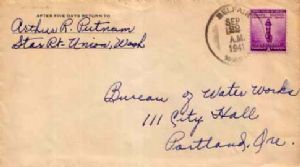 AFTER FIVE DAYS RETURN TO
Arthur R. Putnam
Star Rt. Union, Wash
BELFAIR
SEP
A.M.
1941
Bureau of Water Works
111 City Hall
Portland, Ore.